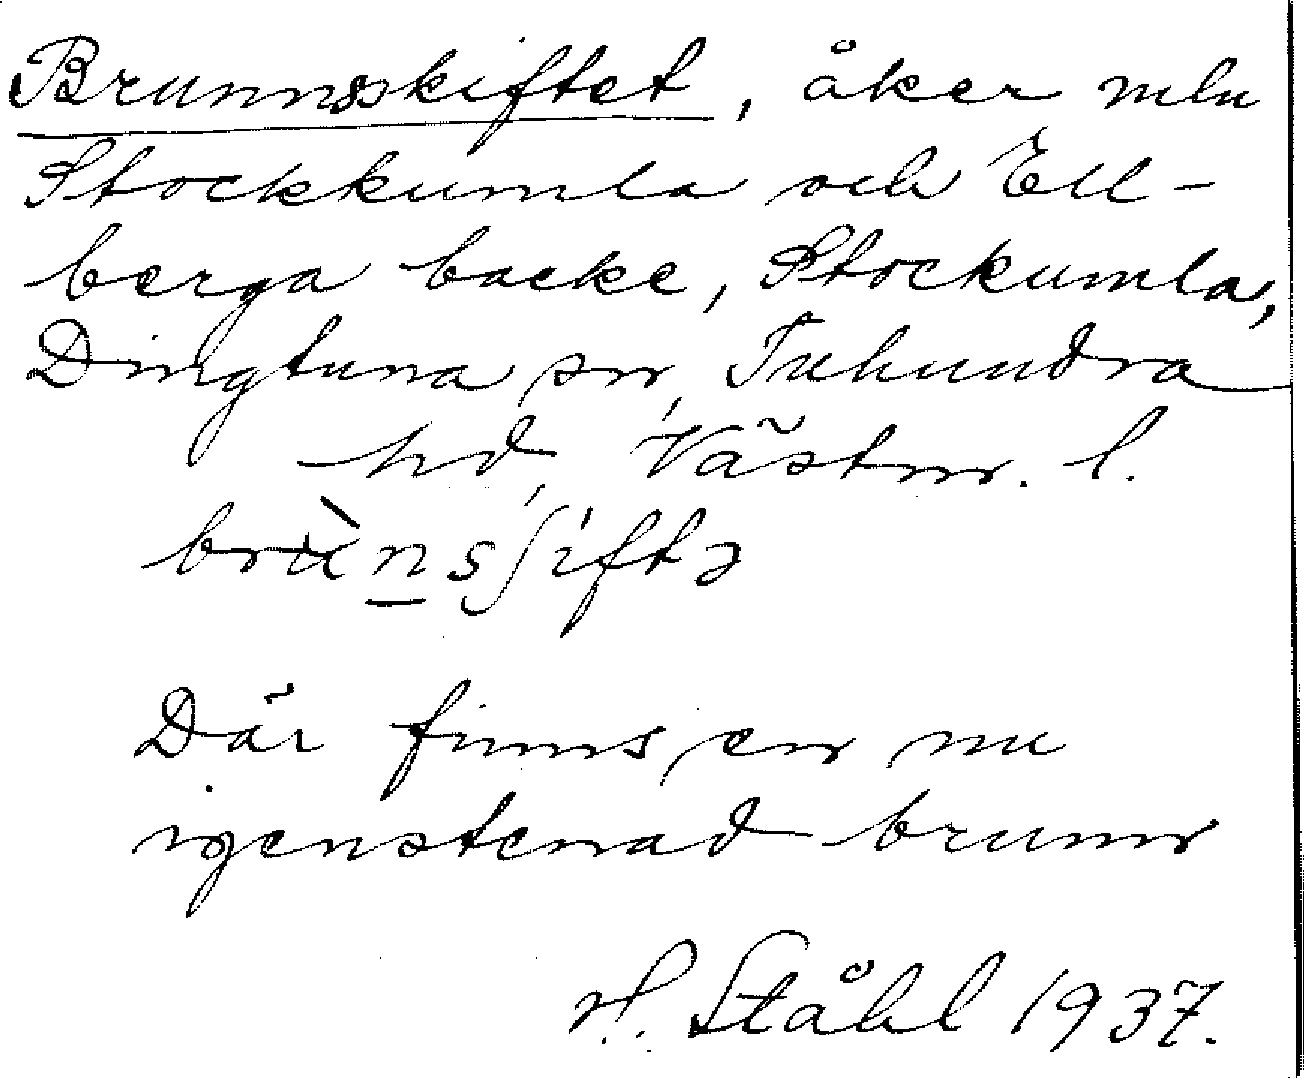 Brunnsskiftet, åker mln
Stockkumla och Ell-
berga backe, Stockumla,
Dingtuna sn, Tuhundra
hd, Västm. l.
brùn̲sʃiftə
Där finns en nu
igenstenad brunn
H. Ståhl 1937.